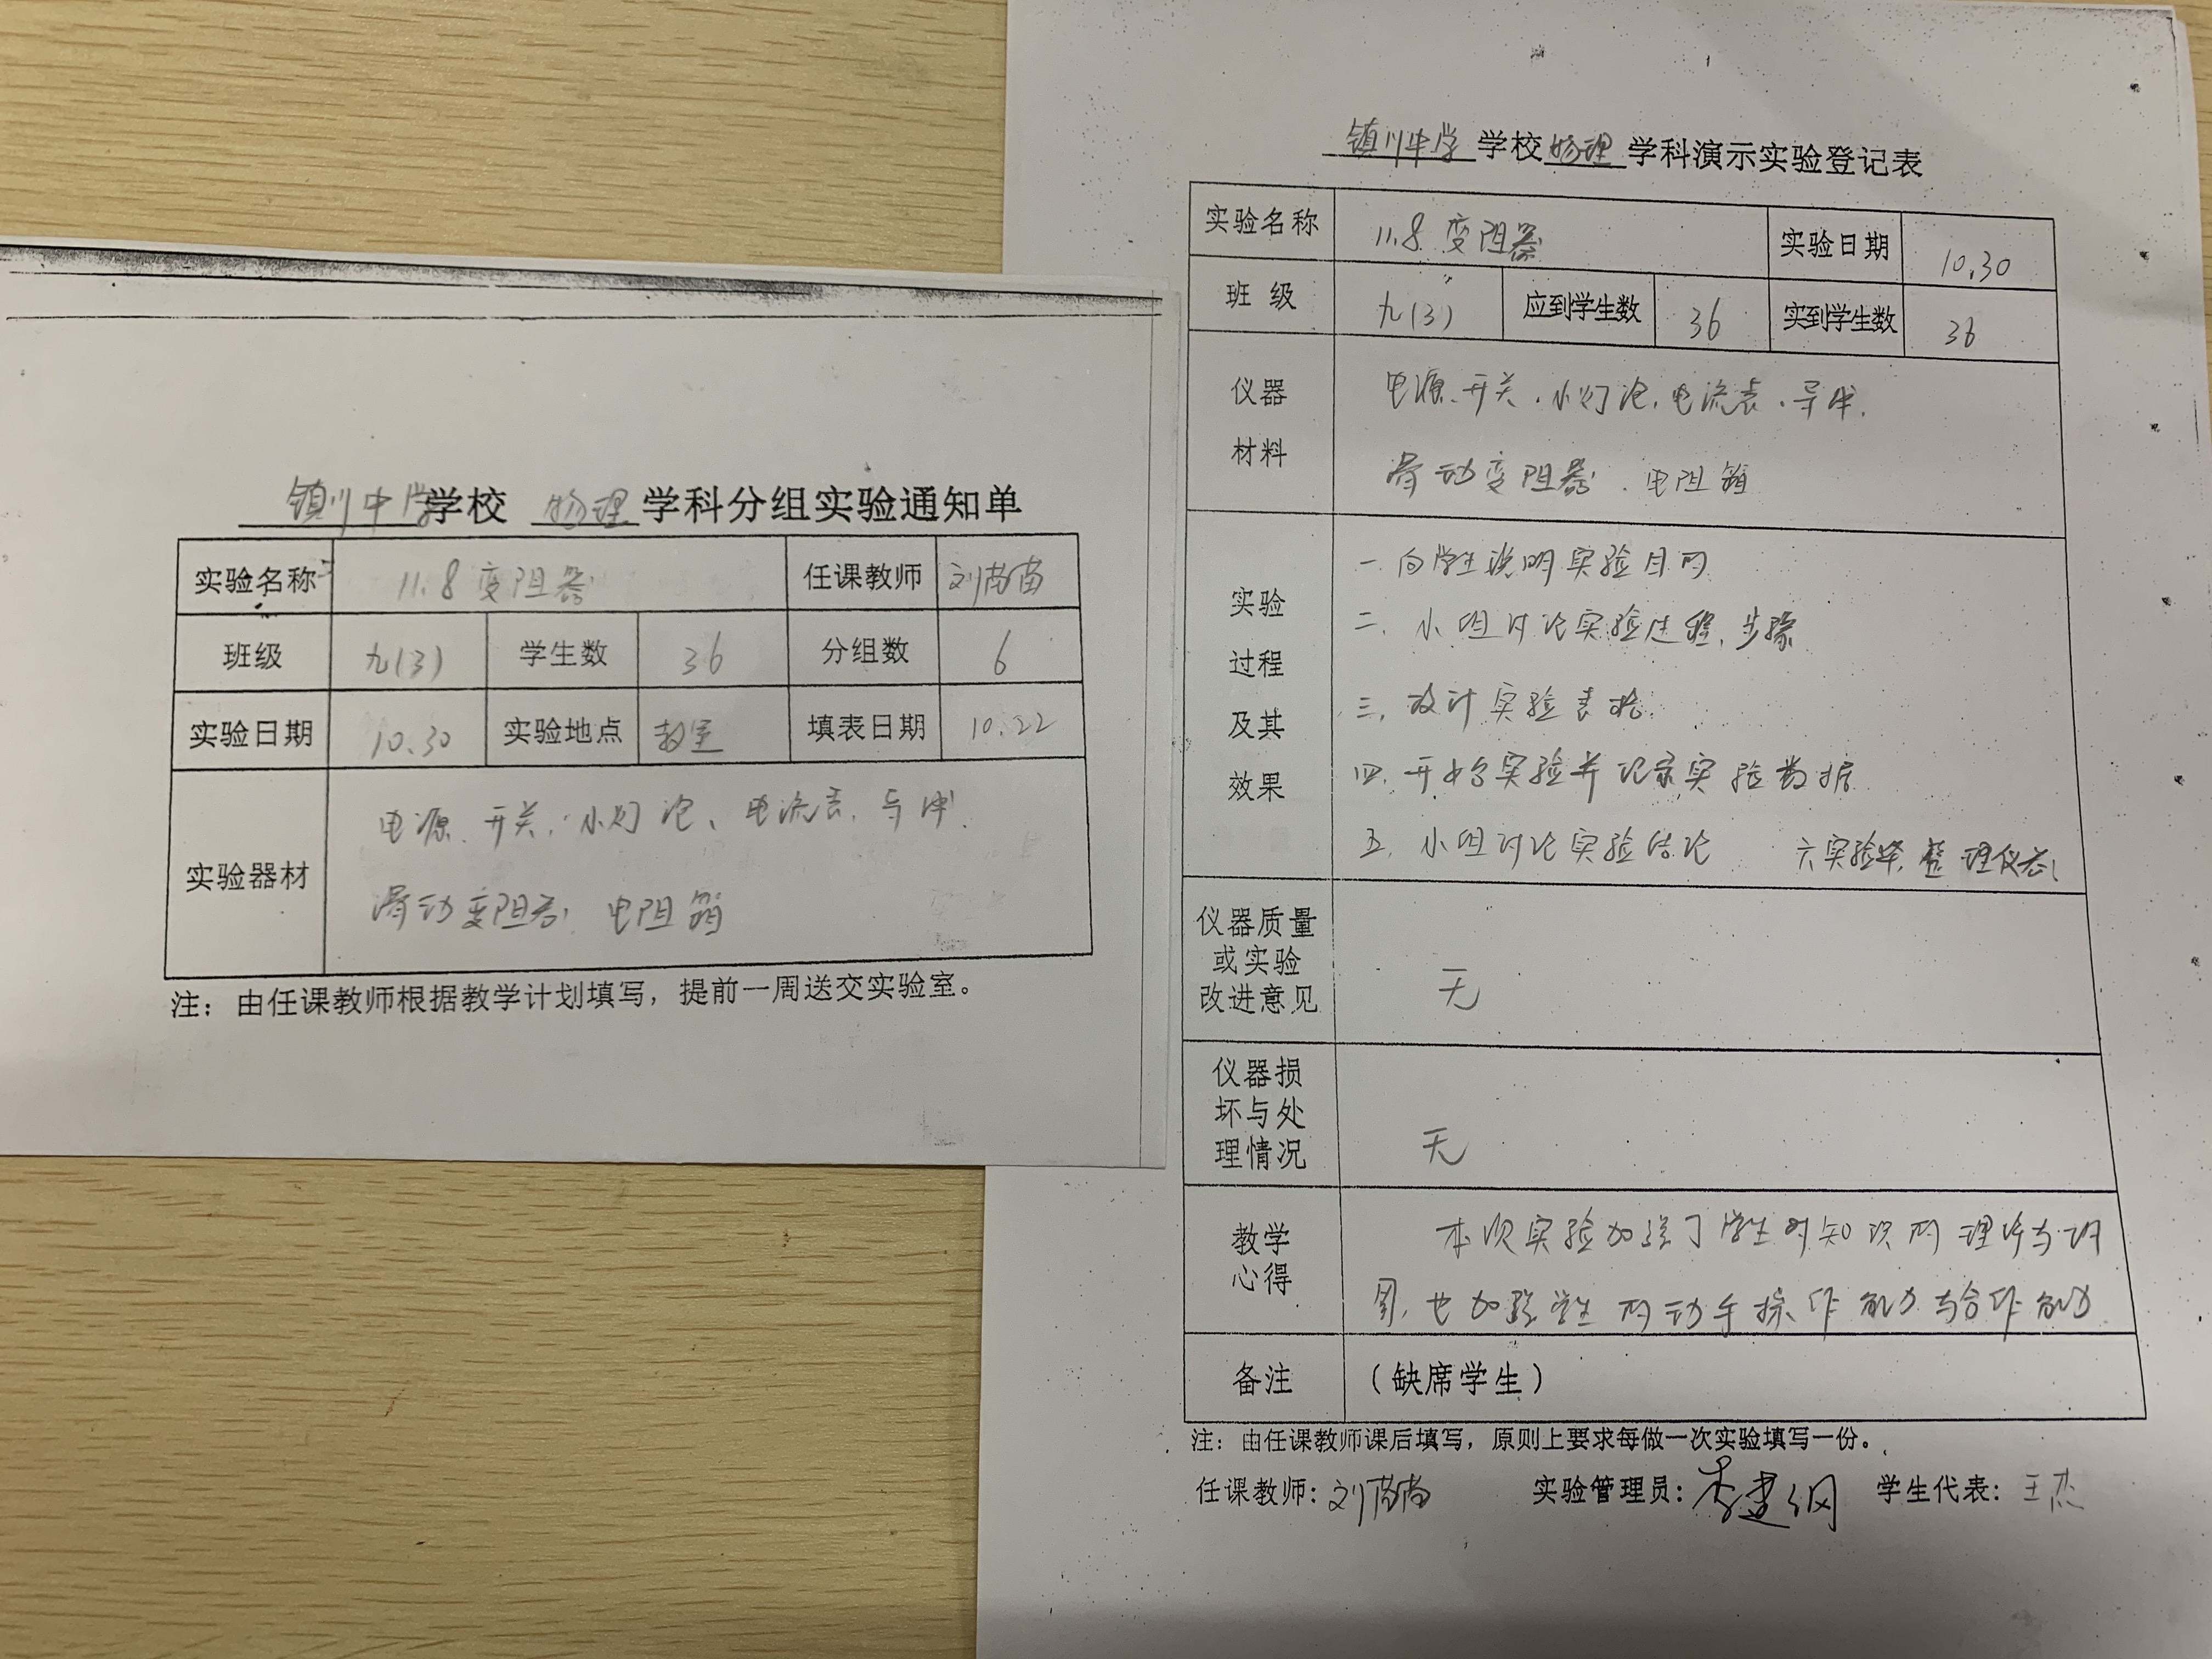 镇川中学学校 物理 学科分组实验通知单
实验名称 11.8 变阻器 任课教师 刘苗苗
班级 九(3) 学生数 36 分组数 6
实验日期 10.30 实验地点 教室 填表日期 10.22
实验器材
电源、开关、小灯泡、电流表、导体、
滑动变阻器、电阻箱
注：由任课教师根据教学计划填写，提前一周送交实验室。
镇川中学 学校 物理 学科演示实验登记表
实验名称 11.8 变阻器 实验日期 10.30
班 级 九(3) 应到学生数 36 实到学生数 36
仪器
材料
电源、开关、小灯泡、电流表、导体、
滑动变阻器、电阻箱
实验
过程
及其
效果
一 向学生说明实验目的
二、小组讨论实验过程、步骤
三、设计实验表格
四、开始实验并记录实验数据
五、小组讨论实验结论 六实验毕，整理仪器
仪器质量
或实验
改进意见
无
仪器损
坏与处
理情况
无
教学
心得
本次实验加强了学生对知识的理解与
，也加强学生的动手操作能力与合作能力
备注 （缺席学生）
注：由任课教师课后填写，原则上要求每做一次实验填写一份。
任课教师：刘苗苗 实验管理员：李建纲 学生代表：王杰